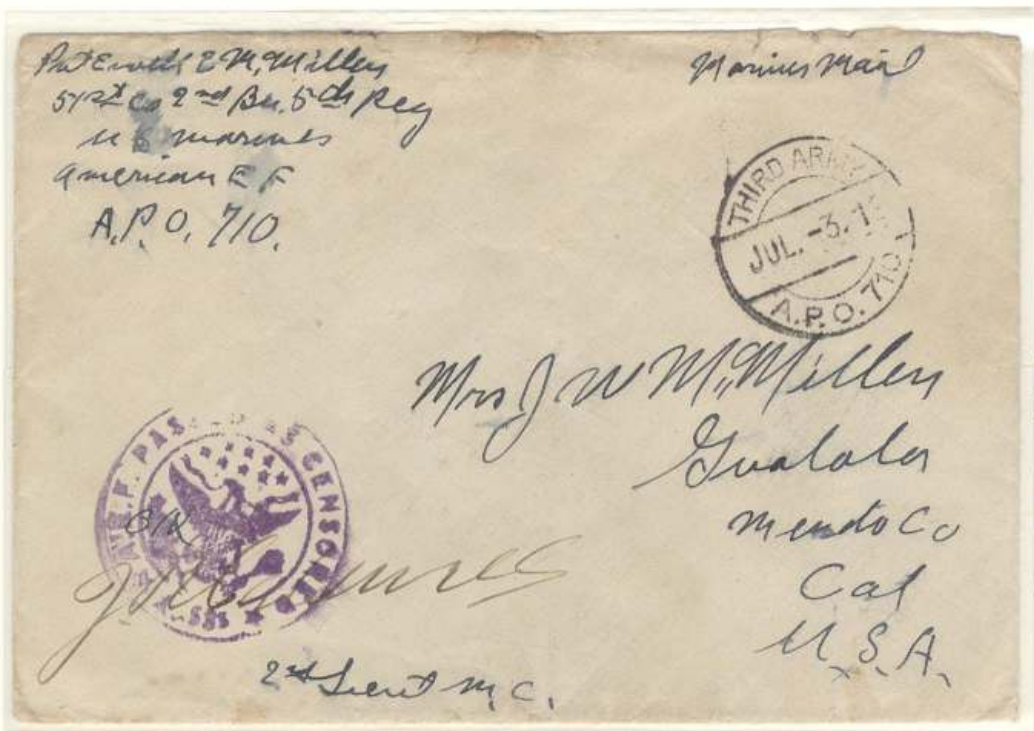 Pvt E McMillen
51st Co 2nd Bn. 5th Reg
U S marines
American E F
A.P.O. 710.
Marines Mail
THIRD ARMY
JUL. -3. 19
A.P.O. 710
Mrs J W McMillen
Gualala
Mendo Co
Cal
U.S.A.
PASSED AS CENSORED
OK
2nd Lieut M.C.